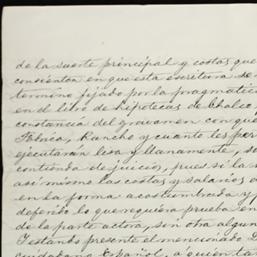 de la suerte principal y costas que
consienta en que esta escritura se
termino fijado por la pragmatica
en el libro de hipotecas de Chalco
constancia del gravamen con que
Fabrica, Rancho y cuanto les per
ejecutarán lisa y llanamente, so
contienda de juicio, pues si la
asi mismo las costas y salarios a
en la forma acostumbrada y
defendo lo que requiera prueba en
de la parte actora, sin otra algun
Y estando presente el mencionado D
ciudadano Español, a quien ta